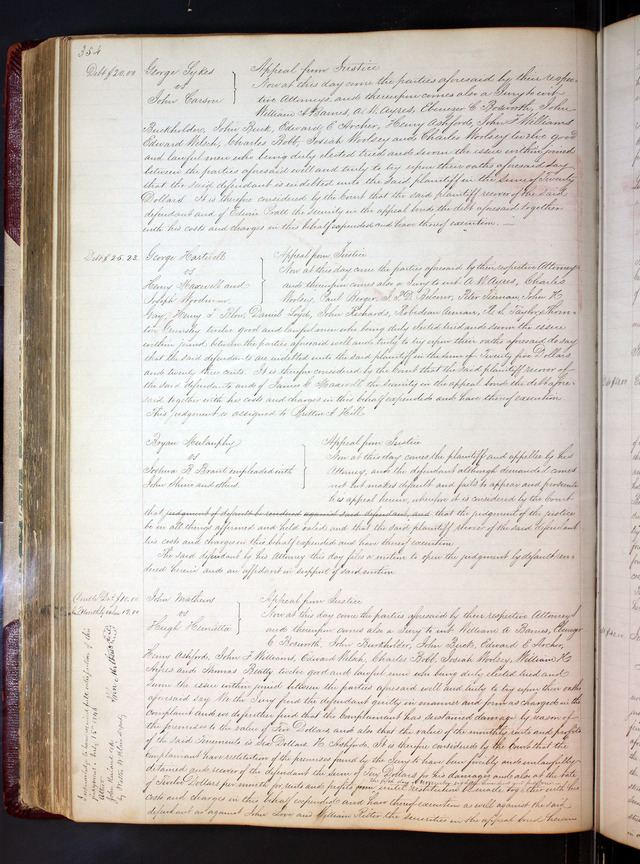 354
Debt $20.00
George Sykes
vs
John Carson
Appeal from Justice
Now at this day come the parties aforesaid by their respec-
tive Attorneys and thereupon comes also a Jury to wit
William A Barnes, A. W. Ayres, Ebenezer C Bosworth, John
Burkholder, John Buck, Edward C Archer, Henry Ashford, John F Williams
Edward Welch, Charles Bobb, Josiah Worlsey and Charles Worlsey twelve good
and lawful men who being duly elected tried and sworn the issue within joined
between the parties aforesaid well and truly to try upon their oaths aforesaid say
that the said defendant is indebted unto the said plaintiff in the sum of Twenty
Dollars. It is therefore considered by the Court that the said plaintiff recover of the said
defendant and of Edwin Ball the security in the appeal bond the debt aforesaid together
with his costs and charges in this behalf expended and have thereof execution.
Debt $25.23
George Hartwell
vs
Henry Maxwell and
Joseph
Appeal from Justice
Now at this day come the parties aforesaid by their respective Attorneys
and thereupon comes also a Jury to wit A. W. Ayres, Charles
Worlsey, Paul Berger, Peter Tiernan, John H
Gray, Henry Daniel Loyd, John Richards, Robertson R. L. Taylor, Thorn-
ton twelve good and lawful men who being duly elected tried and sworn the issue
within joined between the parties aforesaid well and truly to try upon their oaths aforesaid do say
that the said defendants are indebted unto the said plaintiff in the sum of Twenty five Dollars
and twenty three cents. It is therefore considered by the Court that the said plaintiff recover of
the said defendants and of James C Maxwell the security in the appeal bond the debt afore-
said together with his costs and charges in this behalf expended and have thereof execution
This judgment is assigned to A Hill
Bryan Mulanphy
vs
Joshua B Brant impleaded with
John Shine and others
Appeal from Justice
Now at this day comes the plaintiff and appellee by his
Attorney, and the defendant although demanded comes
not but makes default and fails to appear and prosecute
his appeal herein, wherefore it is considered by the Court
that judgment of default be rendered against said defendant, and that the judgment of the justice
be in all things affirmed and held valid and that the said plaintiff recover of the said defendant
his costs and charges in this behalf expended and have thereof execution
The said defendant by his Attorney this day files a motion to open the judgment by default ren-
dered herein and an affidavit in support of said motion
Double Da. $10.00
Monthly value 19.00
John Mathews
vs
Hugh Henrietta
Appeal from Justice
Now at this day come the parties aforesaid by their respective Attorneys
and thereupon comes also a Jury to wit William A Barnes, Ebenezer
C Bosworth, John Burkholder, John Buck, Edward C Archer,
Henry Ashford, John F Williams, Edward Welch, Charles Bobb, Josiah Worlsey, William
Ayres and Thomas Beatty twelve good and lawful men who being duly elected tried and
sworn the issue within joined between the parties aforesaid well and truly to try upon their oaths
aforesaid say We the Jury find the defendant guilty in manner and form as charged in the
complaint and we do further find that the Complainant has sustained damage by reason of
the premises to the value of Five Dollars and also that the value of the monthly rents and profits
of the said tenements is Six Dollars H. Ashford. It is therefore considered by the Court that the
complainant have restitution of the premises found by the Jury to have been forcibly and unlawfully
detained and recover of the defendant the sum of Ten Dollars for his damages and also at the rate
of Twelve Dollars per month for rents and profits from until restitution be made together with his
costs and charges in this behalf expended and have thereof execution as well against the said
defendant as against John Love and William the securities in the appeal bond herein